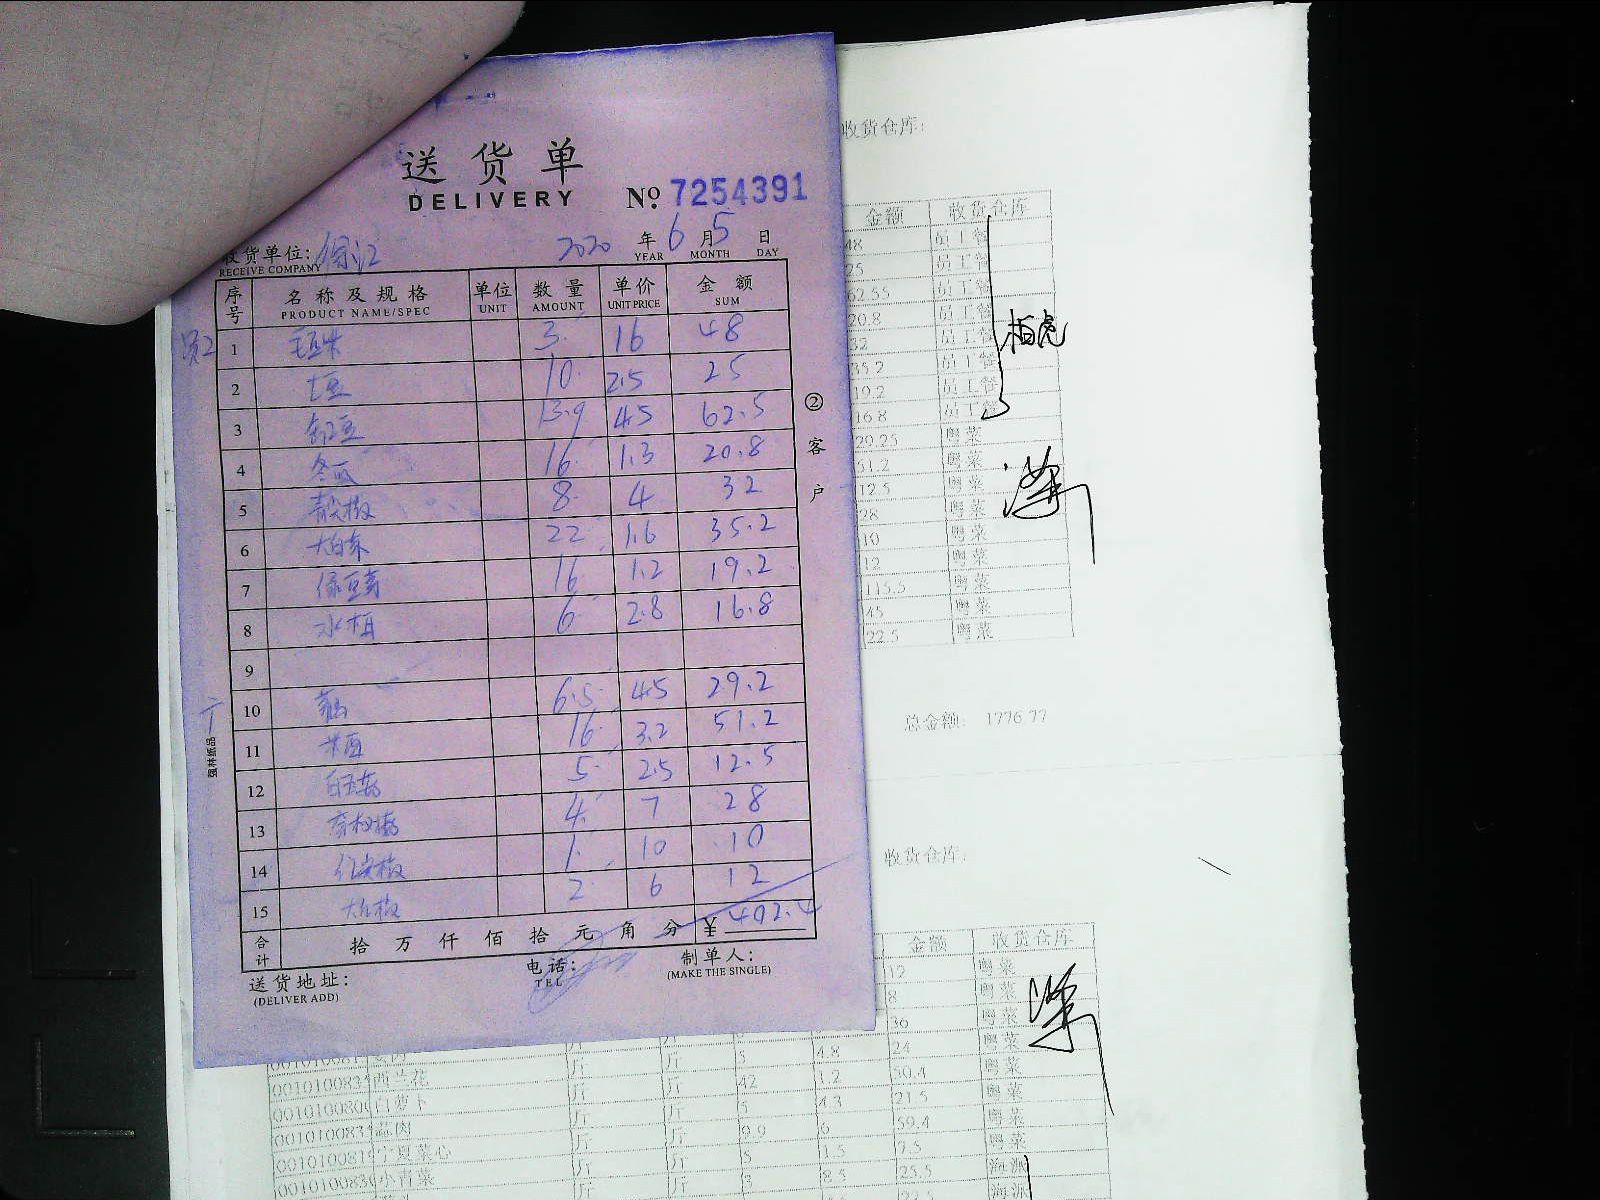 送货单
DELIVERY
№ 7254391
收货单位: 徐汇 2020 年 6 月 5 日
RECEIVE COMPANY YEAR MONTH DAY
序号 名称及规格 单位 数量 单价 金额
PRODUCT NAME/SPEC UNIT AMOUNT UNIT PRICE SUM
员工
1 毛豆米 3 16 48
2 土豆 10 2.5 25
3 13.9 4.5 62.5
4 冬瓜 16 1.3 20.8
5 青尖椒 8 4 32
6 大白菜 22 1.6 35.2
7 绿豆芽 16 1.2 19.2
8 6 2.8 16.8
9
10 6.5 4.5 29.2
11 16 3.2 51.2
12 5 2.5 12.5
13 4 7 28
14 1 10 10
15 2 6 12
合计 拾万仟佰拾元角分 ¥ 492.4
送货地址: 电话: 制单人:
(DELIVER ADD) TEL (MAKE THE SINGLE)
② 客户
强林纸品
收货仓库:
金额 收货仓库
48 员工餐
25 员工餐
62.55 员工餐
20.8 员工餐
32 员工餐
35.2 员工餐
19.2 员工餐
16.8 员工餐
29.25 粤菜
51.2 粤菜
12.5 粤菜
28 粤菜
10 粤菜
12 粤菜
115.5 粤菜
45 粤菜
22.5 粤菜
总金额: 1776.77
收货仓库:
金额 收货仓库
12 粤菜
8 粤菜
36 粤菜
斤 斤 5 4.8 24 粤菜
西兰花 斤 斤 42 1.2 50.4 粤菜
白萝卜 斤 斤 5 4.3 21.5 粤菜
斤 斤 9.9 6 59.4 粤菜
宁夏菜心 斤 斤 5 1.5 7.5 粤菜
小青菜 斤 斤 3 8.5 25.5 海派
海派